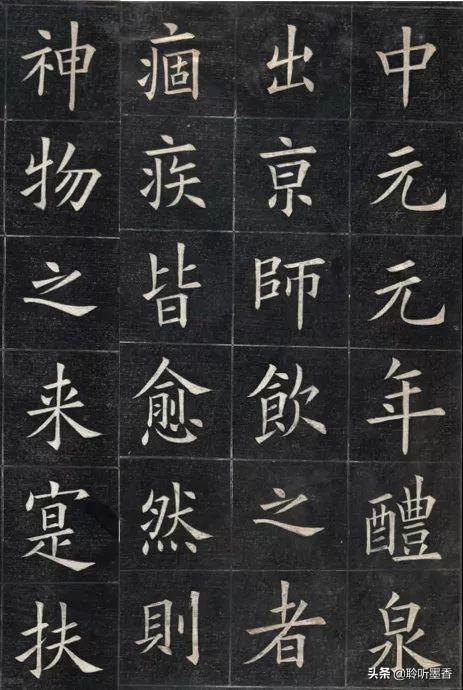 中元元年醴泉
出京師飲之者
痼疾皆愈然則
神物之来寔扶
头条 @聆听墨香